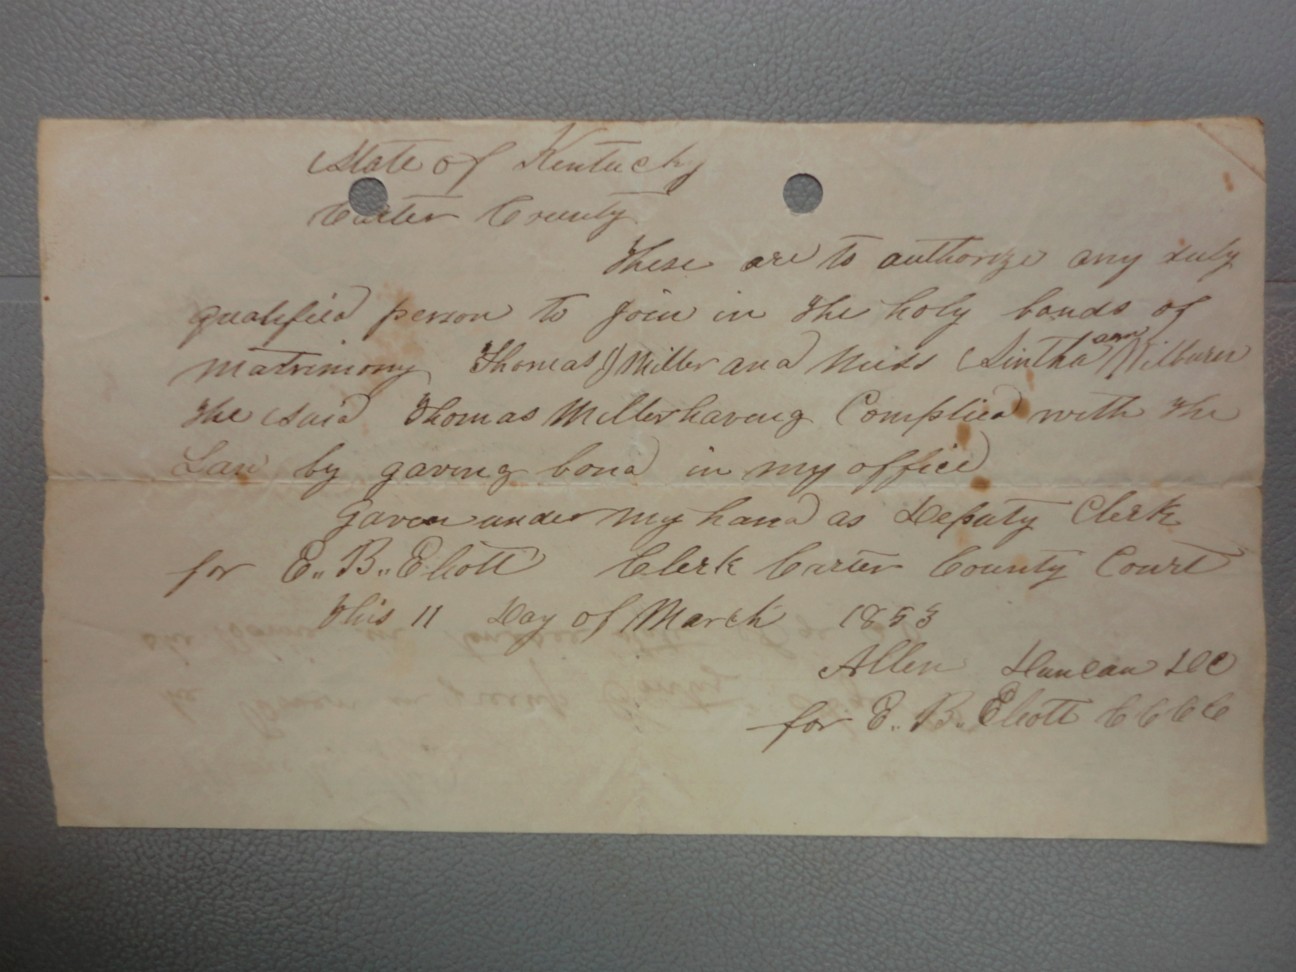 State of Kentucky
Carter County
These are to authorize any duly
qualified person to join in the holy bonds of
matrimony Thomas J Miller and Miss Sintha ann Wilburn
the said Thomas Miller having Complied with the
Law by gaving bond in my office
Gaven under my hand as Deputy Clerk
for E. B. Eliott Clerk Carter County Court
This 11 Day of March 1853
Allen Duncan DC
for E. B. Eliott CCCC